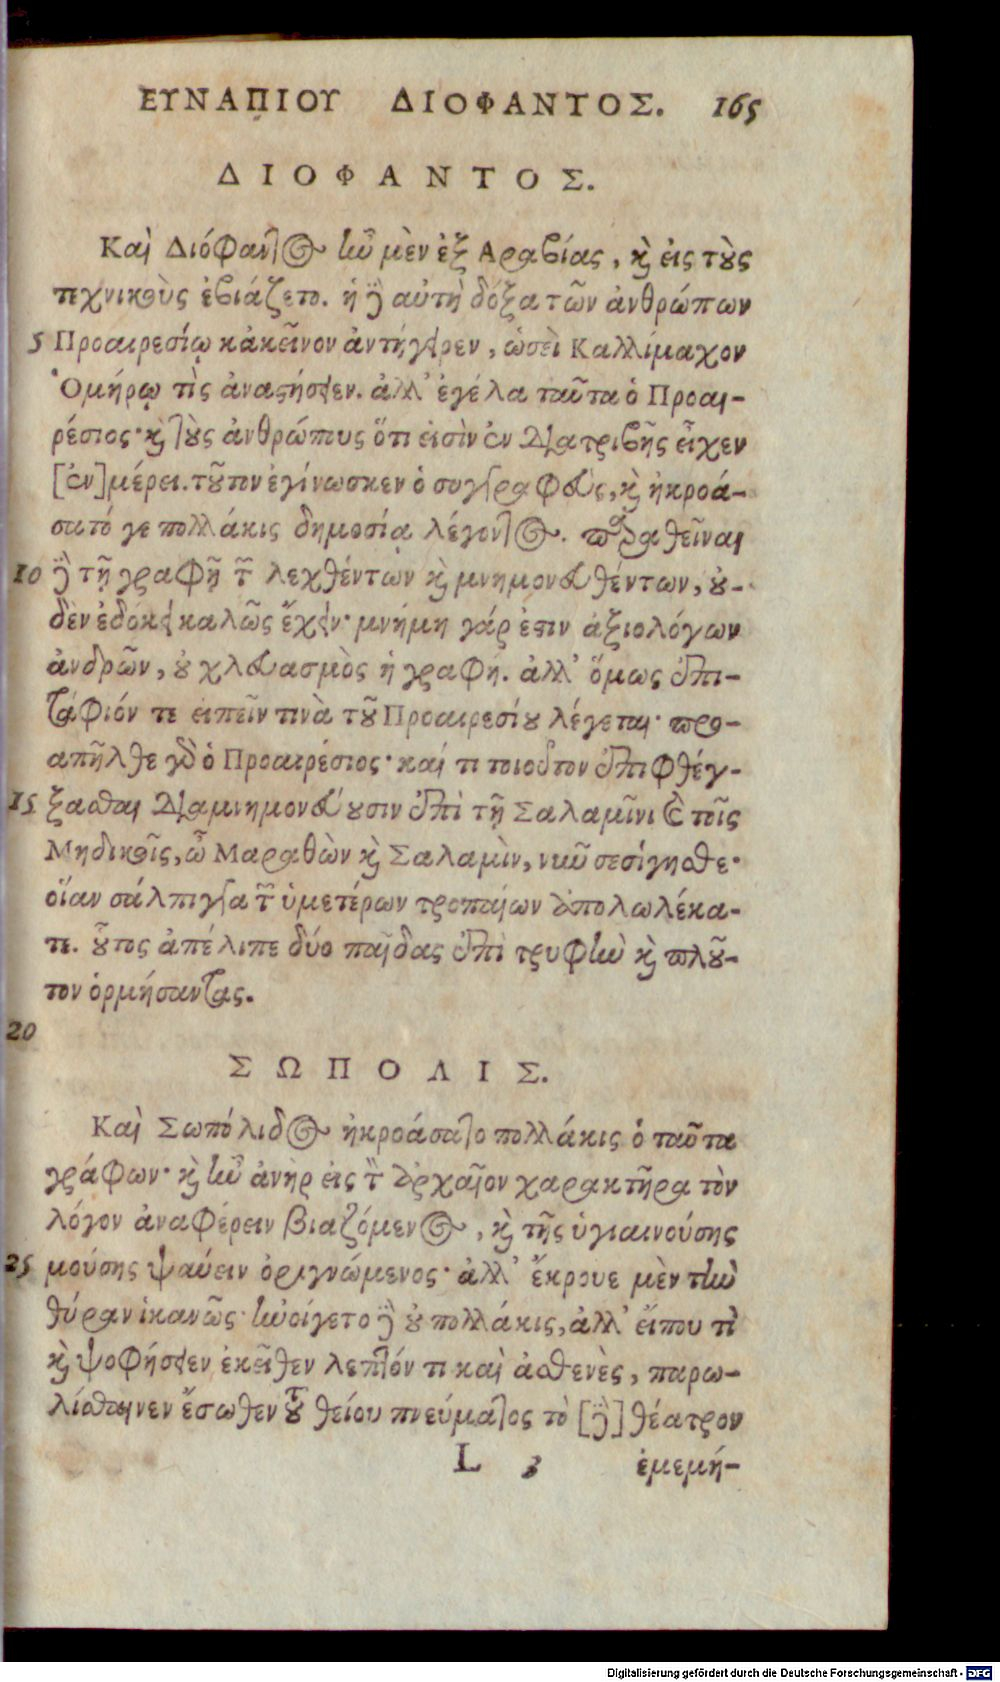 ΕΥΝΑΠΙΟΥ ΔΙΟΦΑΝΤΟΣ. 165
ΔΙΟΦΑΝΤΟΣ.
Καὶ Διόφαντος ἦν μὲν ἐξ Αραβίας, καὶ εἰς τοὺς
τεχνικοὺς ἐβιάζετο. ἡ δὲ αὐτὴ δόξα τῶν ἀνθρώπων
5 Προαιρεσίῳ κἀκεῖνον ἀντήγειρεν, ὡσεὶ Καλλίμαχον
Ὁμήρῳ τὶς ἀναστήσειεν. ἀλλ' ἐγέλα ταῦτα ὁ Προαι-
ρέσιος· καὶ τοὺς ἀνθρώπους ὅτι εἰσὶν ἐν διατριβῆς εἶχεν
[ἐν] μέρει. τοῦτον ἐγίνωσκεν ὁ συγγραφεὺς, καὶ ἠκροά-
σατό γε πολλάκις δημοσίᾳ λέγοντος. παραθεῖναι
10 δὲ τῇ γραφῇ τῶν λεχθέντων καὶ μνημονευθέντων, οὐ-
δὲν ἐδόκει καλῶς ἔχειν· μνήμη γάρ ἐστιν ἀξιολόγων
ἀνδρῶν, οὐ χλευασμὸς ἡ γραφή. ἀλλ' ὅμως ἐπι-
τάφιόν τε εἰπεῖν τινὰ τοῦ Προαιρεσίου λέγεται· προ-
απῆλθε γὰρ ὁ Προαιρέσιος· καί τι τοιοῦτον ἐπιφθέγ-
15 ξασθαι διαμνημονεύουσιν ἐπὶ τῇ Σαλαμῖνι καὶ τοῖς
Μηδικοῖς, ὦ Μαραθὼν καὶ Σαλαμὶν, νῦν σεσίγησθε·
οἵαν σάλπιγγα τῶν ὑμετέρων τροπαίων ἀπολωλέκα-
τε. οὗτος ἀπέλιπε δύο παῖδας ἐπὶ τρυφὴν καὶ πλοῦ-
τον ὁρμήσαντας.
20
ΣΩΠΟΛΙΣ.
Καὶ Σωπόλιδος ἠκροάσατο πολλάκις ὁ ταῦτα
γράφων· καὶ ἦν ἀνὴρ εἰς τὸν ἀρχαῖον χαρακτῆρα τὸν
λόγον ἀναφέρειν βιαζόμενος, καὶ τῆς ὑγιαινούσης
25 μούσης ψαύειν ὀριγνώμενος· ἀλλ' ἔκρουε μὲν τὴν
θύραν ἱκανῶς· ἠνοίγετο δὲ οὐ πολλάκις, ἀλλ' εἴπου τὶ
καὶ ψοφήσειεν ἐκεῖθεν λεπτόν τι καὶ ἀσθενὲς, παρω-
λίσθαινεν ἔσωθεν τοῦ θείου πνεύματος τὸ [δὲ] θέατρον
L 3 ἐμεμή-
Digitalisierung gefördert durch die Deutsche Forschungsgemeinschaft - DFG